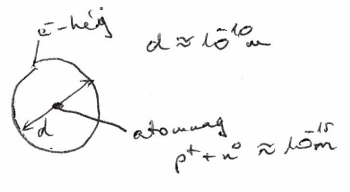 e⁻-héj
d ≈ 10⁻¹⁰ m
d
atommag
p⁺ + n⁰ ≈ 10⁻¹⁵ m